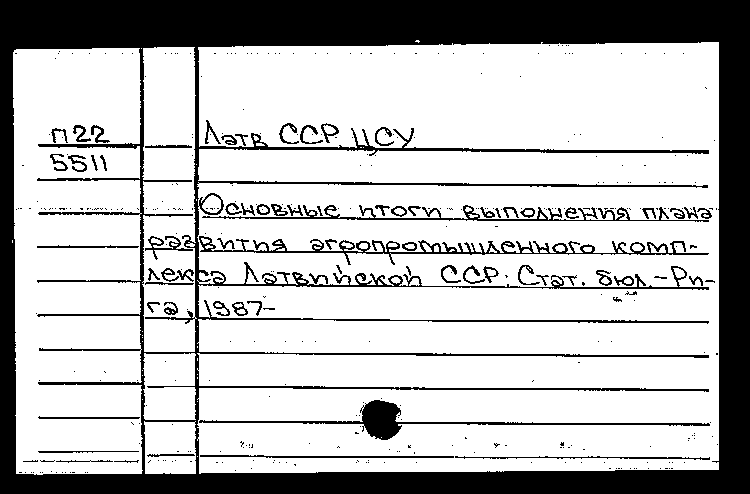 П22 Латв ССР ЦСУ
5511
Основные итоги выполнения плана
развития агропромышленного комп-
лекса Латвийской ССР: Стат. бюл. - Ри-
га, 1987-